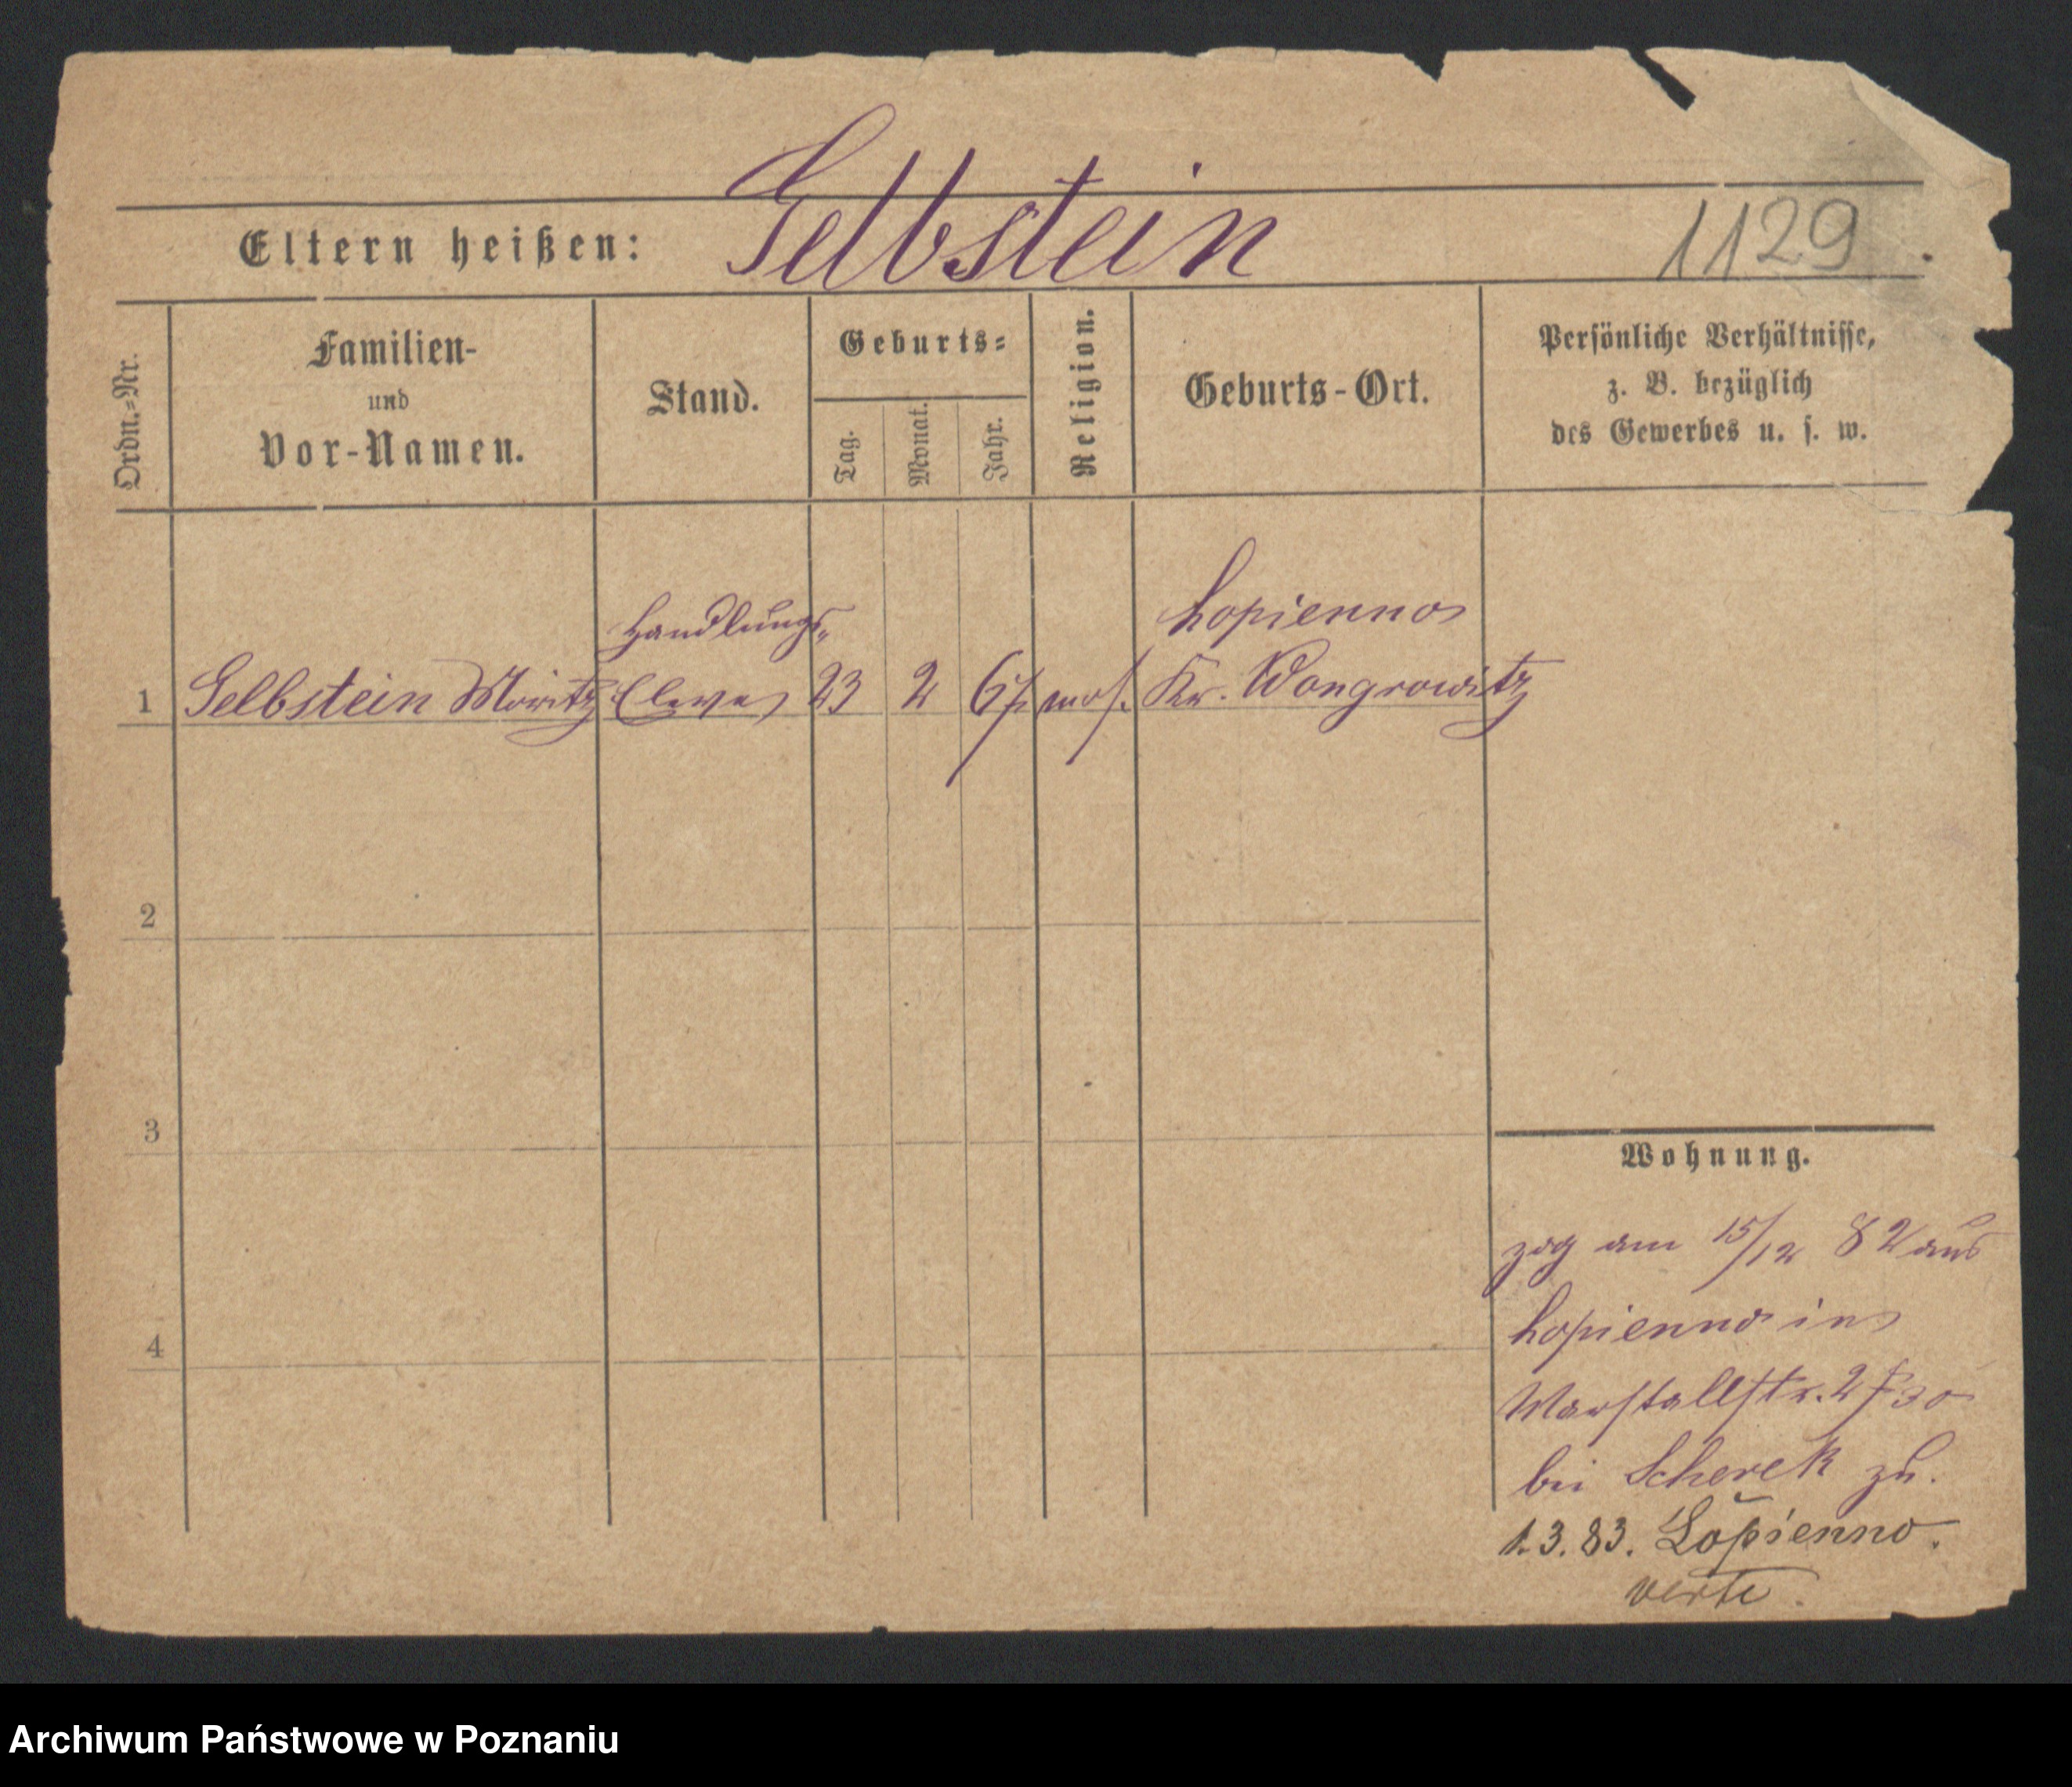 Gelbstein
Eltern heißen:
1129
Ordn.-Nr.
Familien-
und
Vor-Namen.
Stand.
Geburts-
Tag.
Monat.
Jahr.
Religion.
Geburts-Ort.
Persönliche Verhältnisse,
z. B. bezüglich
des Gewerbes u. s. w.
Handlungs-
Lopienno
1 Gelbstein Moritz Eleve 23 2 67 mos. Kr. Wongrowitz
2
3
4
Wohnung.
zog am 15/12 82 aus
Lopienno in
Marstallstr. 2
bei Scherek zu.
1.3.83. Lopienno.
verte.
Archiwum Państwowe w Poznaniu